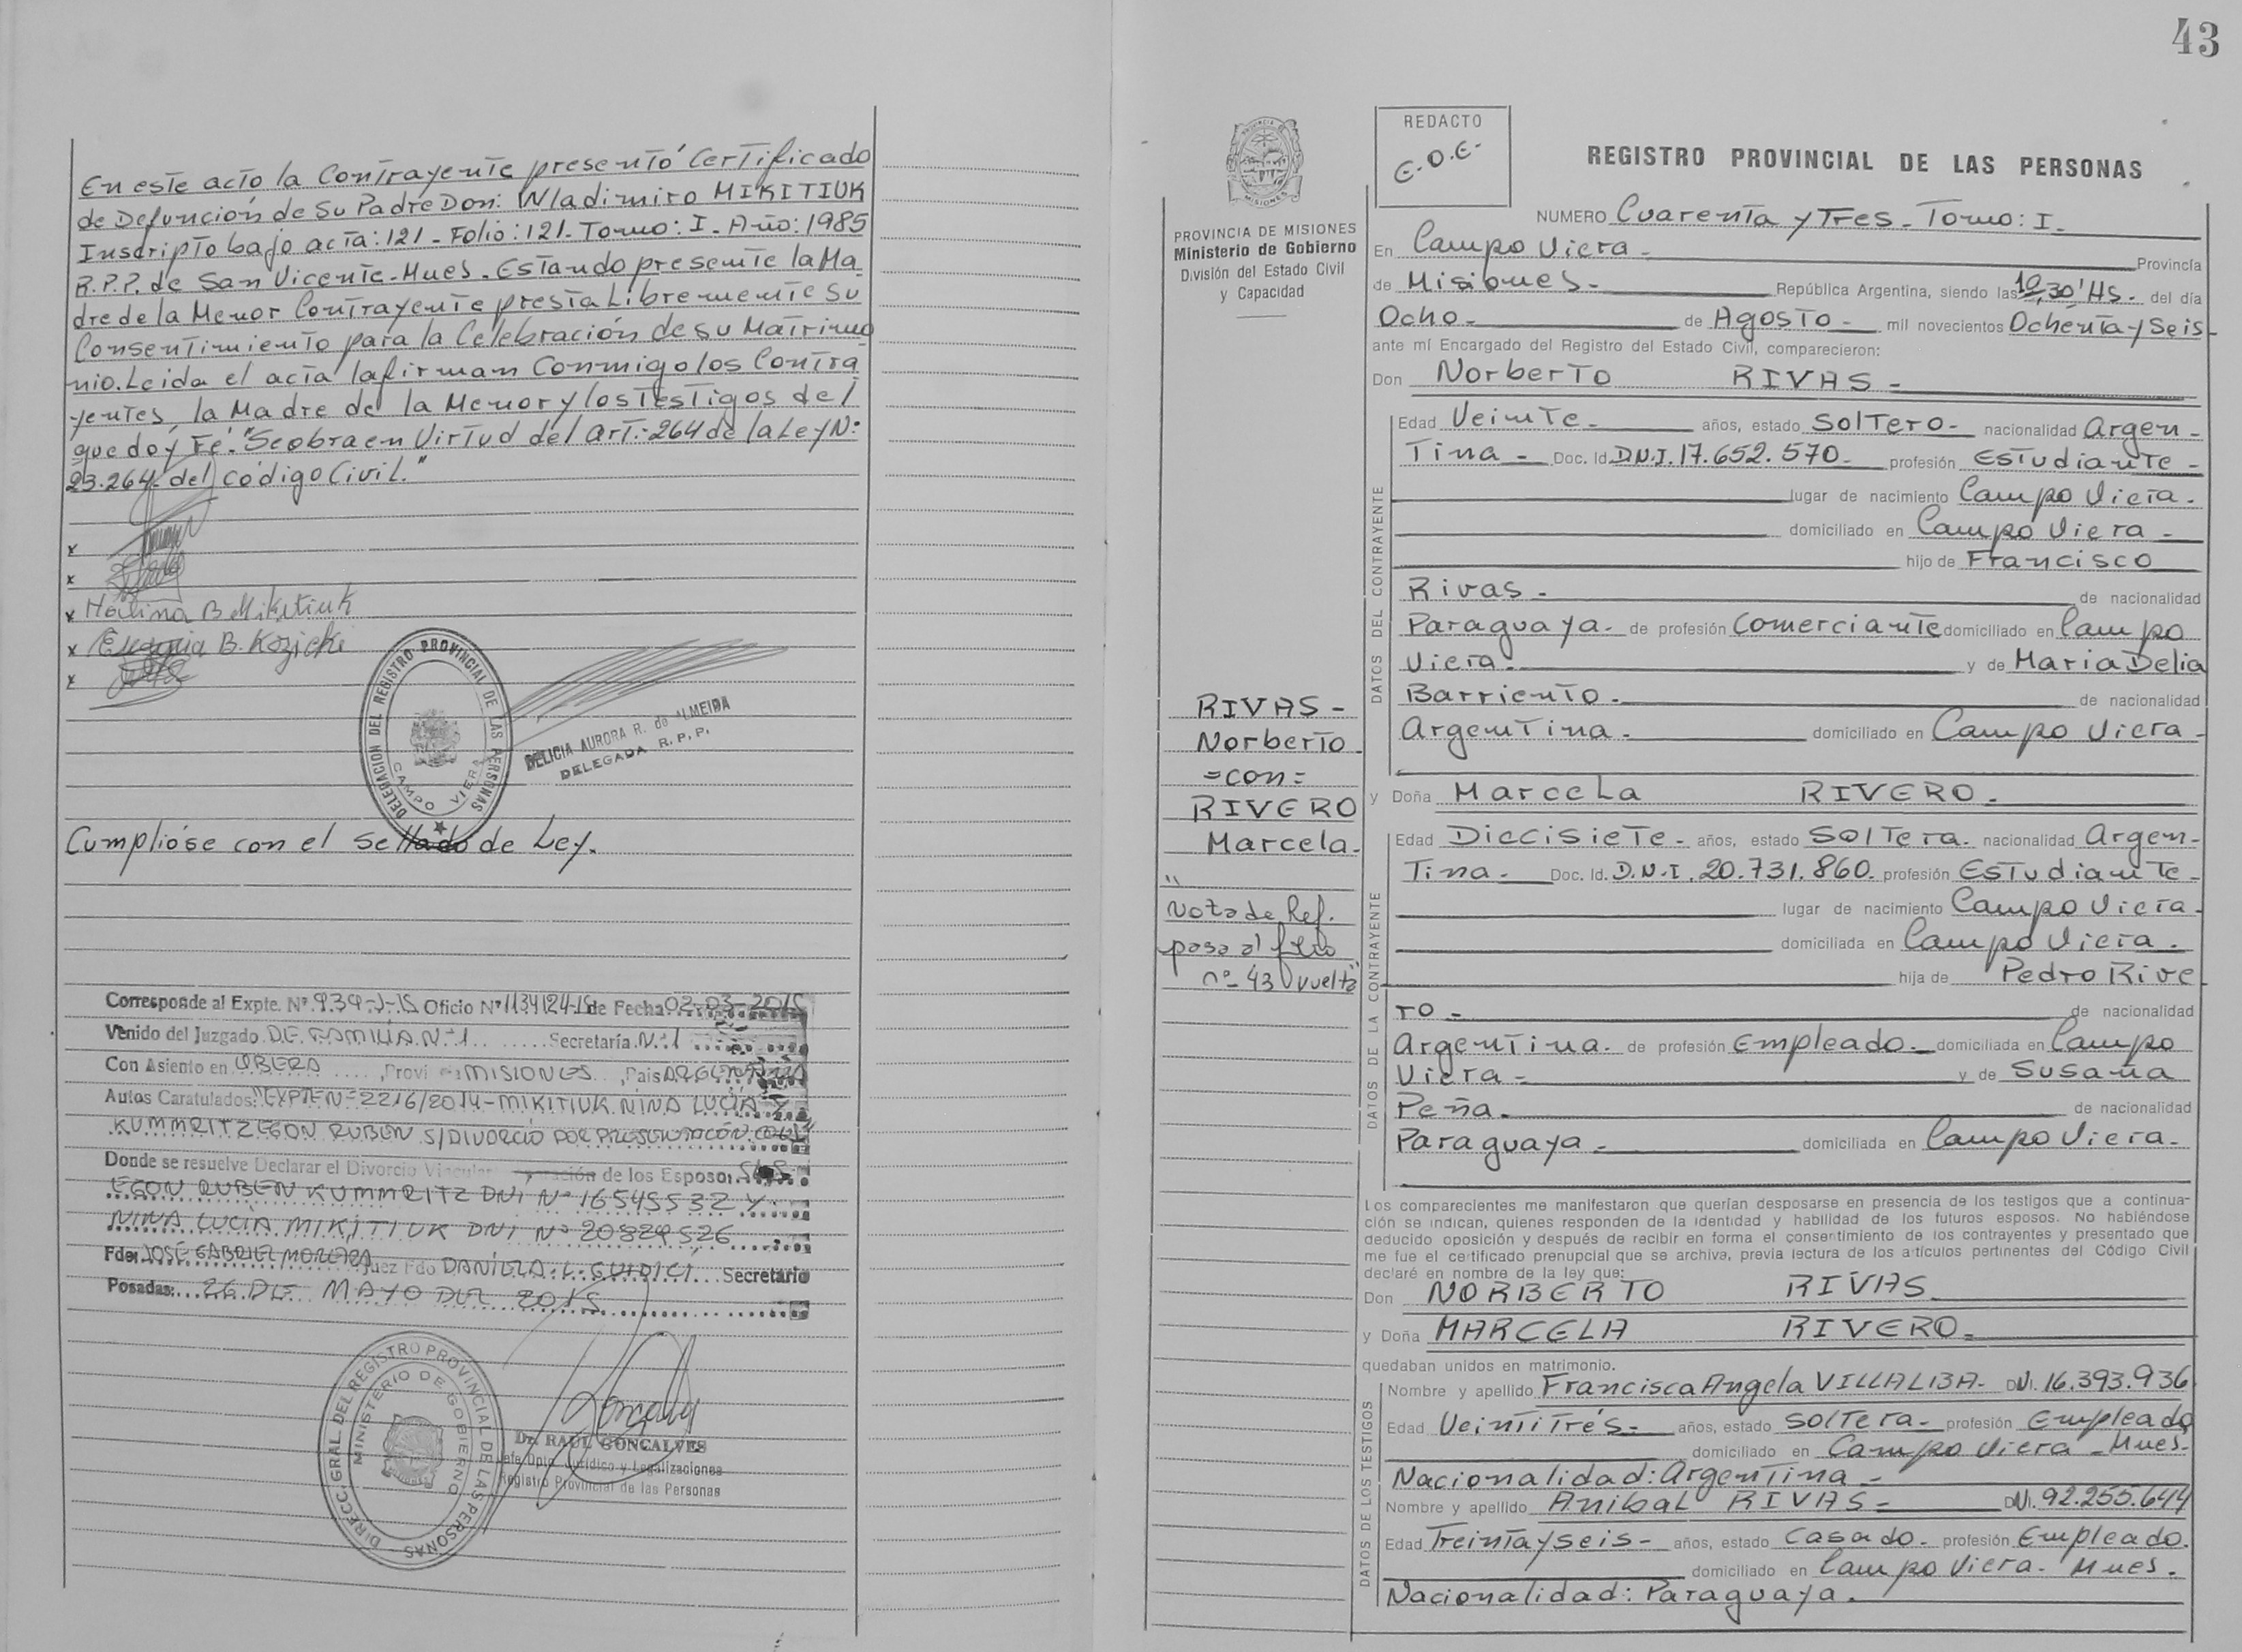 En este acto la Contrayente presentó Certificado
de Defunción de Su Padre Don: Wladimiro MIKITIUK
Inscripto bajo acta: 121 - Folio: 121 - Tomo: I - Año: 1985
R.P.P. de San Vicente - Mnes. Estando presente la Ma
dre de la Menor Contrayente presta Libremente Su
Consentimiento para la Celebración de su Matrimo
nio. Leida el acta la firman Conmigo los Contra
yentes, la Madre de la Menor y los Testigos de l
que doy Fé. "Se obra en Virtud del Art.- 264 de la Ley N°
23.264 del código Civil."
x
x
x Halina B Mikitiuk
x Eugenia B. Kozicki
x
DELEGACION DEL REGISTRO PROVINCIAL DE LAS PERSONAS
CAMPO VIERA
DELICIA AURORA R. de ALMEIDA
DELEGADA R.P.P.
Cumplióse con el sellado de Ley.
Corresponde al Expte. N° 939-J-15 Oficio N° 1134124-15 de Fecha 02-03-2015
Venido del Juzgado DE FAMILIA N°1 Secretaría N°1
Con Asiento en OBERA, Provi MISIONES, Pais ARGENTINA
Autos Caratulados: "EXPTE N° 2216/2014 - MIKITIUK NINA LUCIA Y
KUMMRITZ EGON RUBEN S/DIVORCIO POR PRESENTACIÓN
Donde se resuelve Declarar el Divorcio Vincular de los Esposos
EGON RUBEN KUMMRITZ DNI N° 16545532 Y
NINA LUCIA MIKITIUK DNI N° 20829526
Fdo: JOSÉ GABRIEL MOREIRA Juez Fdo DANIELA L. GUIDICI Secretario
Posadas: 26 DE MAYO DEL 2015
DIRECC. GRAL. DEL REGISTRO PROVINCIAL DE LAS PERSONAS
MINISTERIO DE GOBIERNO
Dr. RAUL GONCALVES
Jefe Dpto. Jurídico y Legalizaciones
Registro Provincial de las Personas
43
PROVINCIA DE
MISIONES
PROVINCIA DE MISIONES
Ministerio de Gobierno
División del Estado Civil
y Capacidad
RIVAS -
Norberto.
=con=
RIVERO
Marcela.
"
Nota de Ref.
pasa al folio
n° 43 vuelta"
REDACTO
E.O.E.
REGISTRO PROVINCIAL DE LAS PERSONAS
NUMERO Cuarenta y Tres - Tomo: I.
En Campo Viera - Provincia
de Misiones - República Argentina, siendo las 10,30' Hs. del día
Ocho - de Agosto - mil novecientos Ochenta y Seis
ante mí Encargado del Registro del Estado Civil, comparecieron:
Don Norberto RIVAS -
DATOS DEL CONTRAYENTE
Edad Veinte - años, estado Soltero - nacionalidad Argen -
Tina - Doc. Id. D.N.I. 17.652.570 - profesión Estudiante -
lugar de nacimiento Campo Viera.
domiciliado en Campo Viera -
hijo de Francisco
Rivas - de nacionalidad
Paraguaya - de profesión Comerciante domiciliado en Campo
Viera - y de Maria Delia
Barriento - de nacionalidad
Argentina - domiciliado en Campo Viera -
y Doña Marcela RIVERO -
DATOS DE LA CONTRAYENTE
Edad Diecisiete - años, estado Soltera - nacionalidad Argen-
Tina - Doc. Id. D.N.I. 20.731.860 - profesión Estudiante -
lugar de nacimiento Campo Viera -
domiciliada en Campo Viera -
hija de Pedro Rive
ro - de nacionalidad
Argentina - de profesión Empleado - domiciliada en Campo
Viera - y de Susana
Peña - de nacionalidad
Paraguaya - domiciliada en Campo Viera -
Los comparecientes me manifestaron que querían desposarse en presencia de los testigos que a continua-
ción se indican, quienes responden de la identidad y habilidad de los futuros esposos. No habiéndose
deducido oposición y después de recibir en forma el consentimiento de los contrayentes y presentado que
me fue el certificado prenupcial que se archiva, previa lectura de los artículos pertinentes del Código Civil
declaré en nombre de la ley que:
Don NORBERTO RIVAS
y Doña MARCELA RIVERO -
quedaban unidos en matrimonio.
DATOS DE LOS TESTIGOS
Nombre y apellido Francisca Angela VILLALBA - DNI. 16.393.936
Edad Veintitrés - años, estado Soltera - profesión Empleado
domiciliado en Campo Viera - Mnes -
Nacionalidad: Argentina -
Nombre y apellido Anibal RIVAS - DNI. 92.255.644
Edad Treinta y Seis - años, estado Casado - profesión Empleado.
domiciliado en Campo Viera - Mnes.
Nacionalidad: Paraguaya.